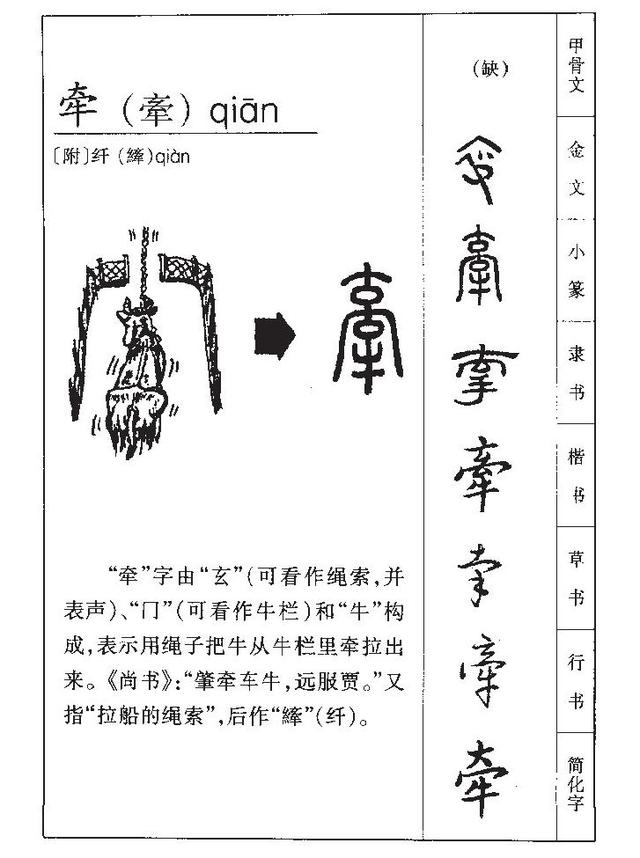 牵（牽）qiān
〔附〕纤（縴）qiàn
“牵”字由“玄”（可看作绳索，并
表声）、“冂”（可看作牛栏）和“牛”构
成，表示用绳子把牛从牛栏里牵拉出
来。《尚书》：“肇牵车牛，远服贾。”又
指“拉船的绳索”，后作“縴”（纤）。
（缺）
甲骨文
金文
小篆
隶书
楷书
草书
行书
简化字
牽
牽
牽
牵